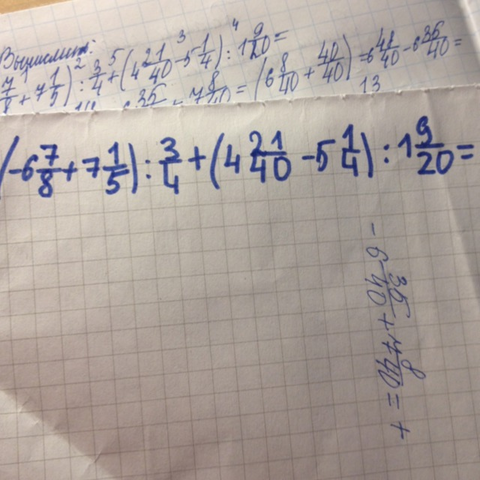 Вычислить:
7/8 + 7 1/5) : 3/4 + (4 21/40 - 5 1/4) : 1 9/20 =
= (6 8/40 + 40/40) = 6 48/40 - 6 35/40 =
13
(-6 7/8 + 7 1/5) : 3/4 + (4 21/40 - 5 1/4) : 1 9/20 =
-6 35/40 + 7 8/40 = +